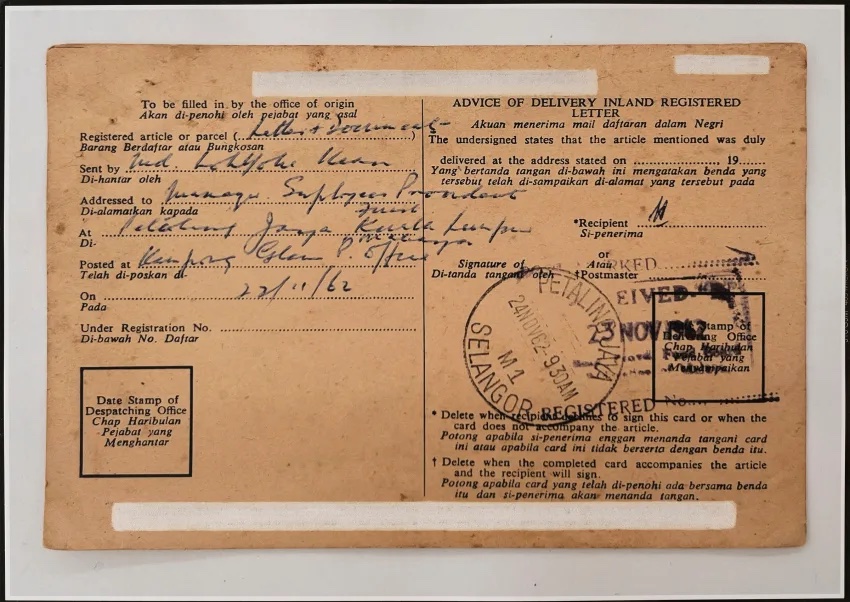 To be filled in by the office of origin
Akan di-penohi oleh pejabat yang asal
Registered article or parcel ( Letter + document )
Barang Berdaftar atau Bungkosan
Sent by
Di-hantar oleh
Addressed to Manager Employees Provident
Di-alamatkan kapada Fund
At Petaling Jaya Kuala Lumpur
Di- Malaya
Posted at Kampong Glam P. Office
Telah di-poskan di-
On 22/11/62
Pada
Under Registration No.
Di-bawah No. Daftar
Date Stamp of
Despatching Office
Chap Haribulan
Pejabat yang
Menghantar
ADVICE OF DELIVERY INLAND REGISTERED
LETTER
Akuan menerima mail daftaran dalam Negri
The undersigned states that the article mentioned was duly
delivered at the address stated on 19
Yang bertanda tangan di-bawah ini mengatakan benda yang
tersebut telah di-sampaikan di-alamat yang tersebut pada
*Recipient
Si-penerima
or
Signature of Atau
Di-tanda tangani oleh †Postmaster
PETALING JAYA
24NOV62-930AM
M1
SELANGOR
EIVED
23 NOV 1962
Stamp of
Delivering Office
Chap Haribulan
Pejabat yang
Menyampaikan
REGISTERED No.
* Delete when recipient declines to sign this card or when the
card does not accompany the article.
Potong apabila si-penerima enggan menanda tangani card
ini atau apabila card ini tidak berserta dengan benda itu.
† Delete when the completed card accompanies the article
and the recipient will sign.
Potong apabila card yang telah di-penohi ada bersama benda
itu dan si-penerima akan menanda tangan.